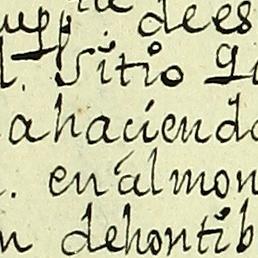 upp. de es
l. Sitio Qu
ahaciendo
. en almon
n dehontib